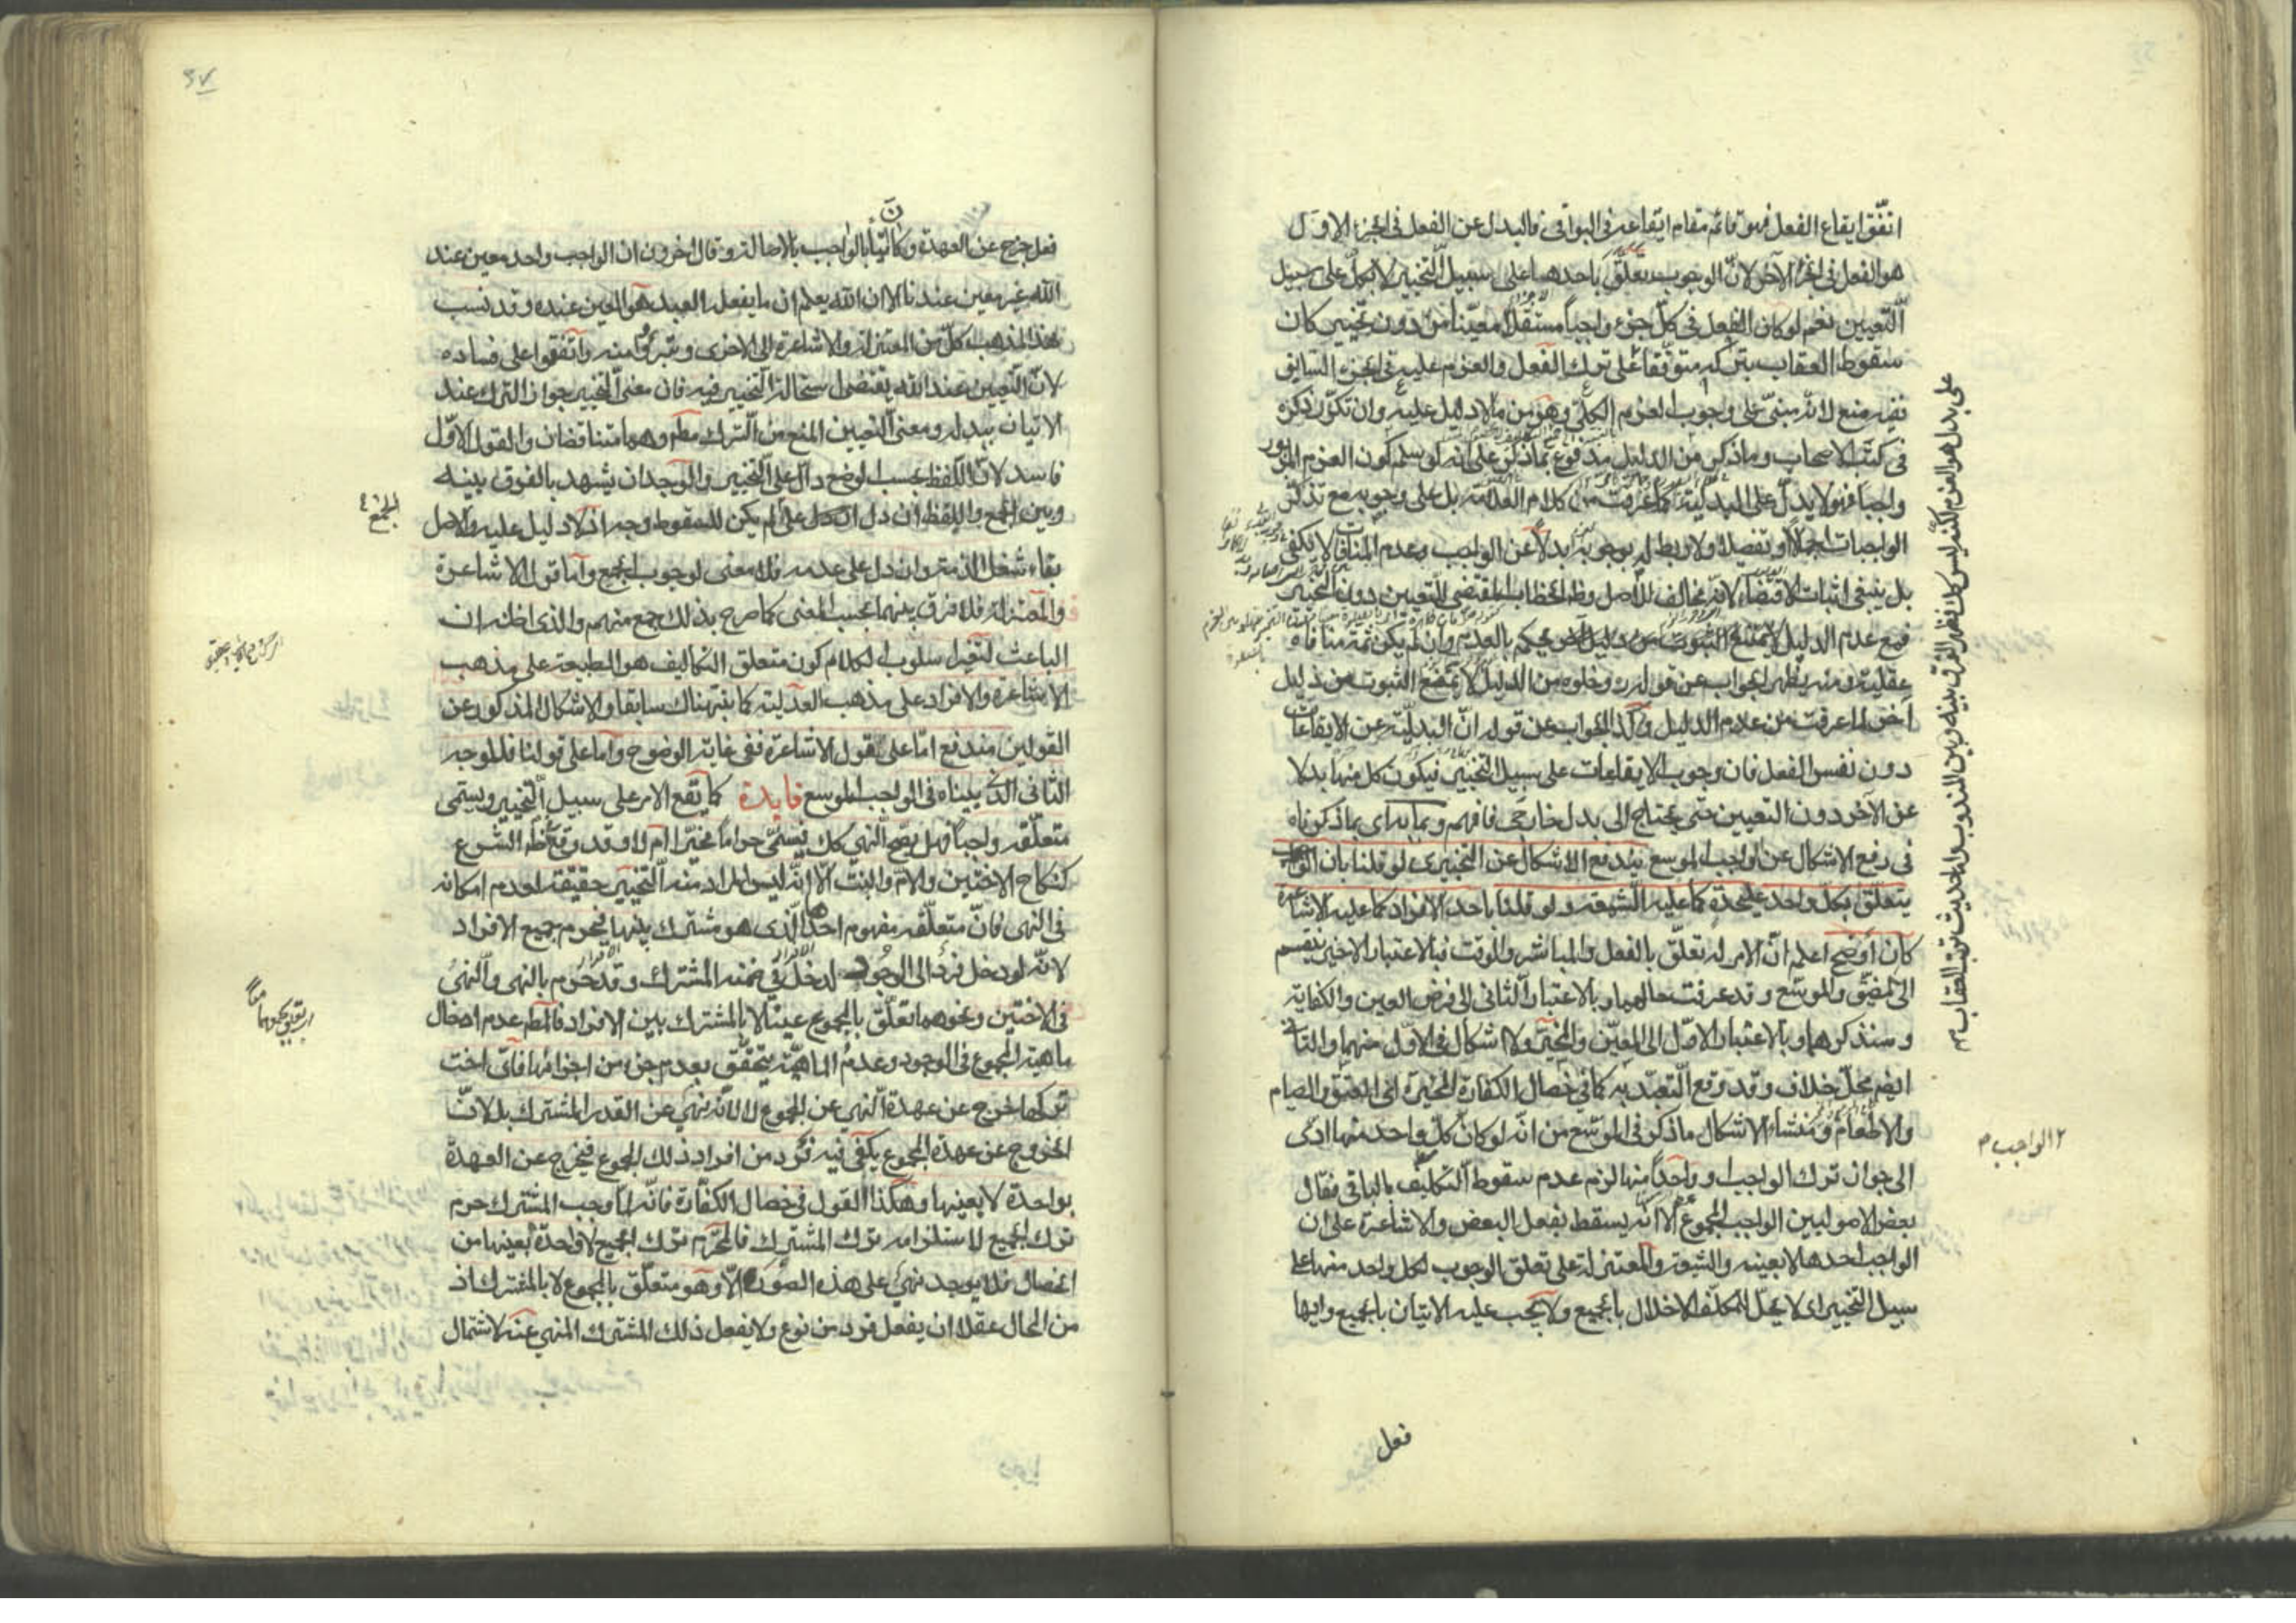 اتفّق ايقاع الفعل فهو قائم مقام ايقاعه فى البواقى فالبدل عن الفعل فى الجزء الاول
هو الفعل فى الجزء الآخر لانّ الوجوب يتعلّق باحدهما على سبيل التخيير لا بكلّ على سبيل
التّعيين نعم لو كان الفعل فى كلّ جزء واجباً مستقلاً معيّناً من دون تخيير كان
سقوط العقاب بتركه متوقّفاً على ترك الفعل والعزم عليه فى الجزء السابق
ففيه منع لانّه مبنىّ على وجوب العزم الكلّى وهو من ما لا دليل عليه وان تكرّر ذكره
فى كتب الاصحاب وما ذكر من الدليل مدفوع بما ذكر على انه لو سلم كون العزم المزبور
واجبا فهو لا يدلّ على البدليّة كما عرفت من كلام العلامة بل على وجوبه مع تذكر
الواجبات اجمالاً وتفصيلا ولا ربط له بوجوبه بدلاً عن الواجب وعدم المنافات لا يكفى
بل ينبغى اثبات الاقتضاء لانّه مخالف للأصل وظ الخطاب المقتضى للتعيين دون التخيير
فمع عدم الدليل لا يمتنع الثبوت من دليل آخر يحكم بالعدم وان لم يكن ثمة منافاة
عقلية ومنه يظهر الجواب عن قوله ره وخلوه من الدليل لا يمنع الثبوت من دليل
آخر لما عرفت من عدم الدليل وكذا الجواب عن قوله انّ البدليّة عن الايقاعات
دون نفس الفعل فان وجوب الايقاعات على سبيل التخيير فيكون كل منها بدلا
عن الآخر دون التعيين حتى يحتاج الى بدل خارجى فافهم وبمثابه اى بما ذكرناه
فى رفع الاشكال عن الواجب الموسع يندفع الاشكال عن التخييرى لو قلنا بان الوجوب
يتعلّق بكلّ واحد عليحدة كما عليه الشيعة ولو قلنا باحد الافراد كما عليه الاشاعرة
كان أوضح اعلم انّ الامر له تعلّق بالفعل والمباشر والوقت فبالاعتبار الاخير ينقسم
الى المضيّق والموسّع وقد عرفت حالهما وبالاعتبار الثانى الى فرض العين والكفاية
وسنذكرهما وبالاعتبار الاوّل الى المعيّن والمخيّر ولا اشكال فى الاوّل منهما والثانى
ايضم محلّ خلاف وقد وقع التّعبّد به كما فى خصال الكفارة المخيرة اى العتق والصيام
والاطعام ومنشاء الاشكال ما ذكر فى الموسّع من انّه لو كان كلّ واحد منها ادى
الى جواز ترك الواجب او واحداً منها لزم عدم سقوط التكليف بالباقى فقال
بعض الاصوليين الواجب المجموع الا انّه يسقط بفعل البعض والاشاعرة على ان
الواجب احدها لا بعينه والشيعة والمعتزلة على تعلق الوجوب لكل واحد منها على
سبيل التخيير اى لا يحلّ للمكلّف الاخلال بالجميع ولا يجب عليه الاتيان بالجميع وايها
على بدل هو العزم لكنه ليس كك فظهر الفرق بينه وبين المندوب ولحديث ترتب العقاب
٢ الواجب م
فعل
٣٧
فعل خرج عن العهدة وكان آتياً بالواجب بالاصالة وقال آخرون ان الواجب واحد معين عند
الله غير معين عندنا الا ان الله يعلم ان ما يفعله العبد هو المعين عنده وقد نسب
هذا المذهب كلّ من المعتزلة والاشاعرة الى الاخرى وتبرّؤا منه واتفقوا على فساده
لانّ التّعيين عند الله يقتضى استحالة التخيير فيه فان معنى التخيير جواز الترك عند
الاتيان ببدله ومعنى التعيين المنع من الترك مطم وهما متناقضان والقول الاوّل
فاسد لانّ اللّفظ بحسب الوضع دالّ على التخيير والوجدان يشهد بالفرق بينه
وبين الجمع واللفظ ان دل على لم يكن للسقوط وجه اذ لا دليل عليه والاصل
بقاء شغل الذمة وان دل على عدمه فلا معنى لوجوب الجميع وامّا قول الاشاعرة
والمعتزلة فلا فرق بينهما بحسب المعنى كما صرح بذلك جمع منهم والذى اظنه ان
الباعث لتغيّر اسلوب الكلام كون متعلق التكاليف هو الطبيعة على مذهب
الاشاعرة والافراد على مذهب العدلية كما نبّهناك سابقا والاشكال المذكور عن
القولين مندفع امّا على قول الاشاعرة ففى غاية الوضوح وامّا على قولنا فللوجه
الثانى الذى بيناه فى الواجب الموسع فايدة كما يقع الامر على سبيل التخيير ويسمّى
متعلّقه واجباً فهل يصحّ النّهى كك فيسمّى حراماً مخيّرا ام لا وقد وقع ظم الشرع
كنكاح الاختين والامّ والبنت الّا انّه ليس المراد منه التخيير حقيقة لعدم امكانه
فى النهى فانّ متعلّقه مفهوم احدها الّذى هو مشترك بينها فيحرم جميع الافراد
لانّه لو دخل فرد الى الوجود لدخل فى ضمنه المشترك وقد حرّم بالنهى والنهى
فى الاختين ونحوهما تعلّق بالمجموع عينا لا بالمشترك بين الافراد فالمطم عدم ادخال
ماهية المجموع فى الوجود وعدم الماهيّة يتحقّق بعدم جزء من اجزائها فاىّ اخت
تركها خرج عن عهدة النّهى عن المجموع لا لانّه نهى عن القدر المشترك بل لانّ
الخروج عن عهدة المجموع يكفى فيه فرد من افراد ذلك المجموع فيخرج عن العهدة
بواحدة لا بعينها وهكذا القول فى خصال الكفّارة فانّه لمّا وجب المشترك حرم
ترك الجميع لاستلزامه ترك المشترك فالمحرّم ترك الجميع لا واحدة بعينها من
الخصال فلا يوجد نهى على هذه الصورة الّا وهو متعلّق بالمجموع لا بالمشترك اذ
من المحال عقلا ان يفعل فرد من نوع ولا يفعل ذلك المشترك المنهى عنه لاشتمال